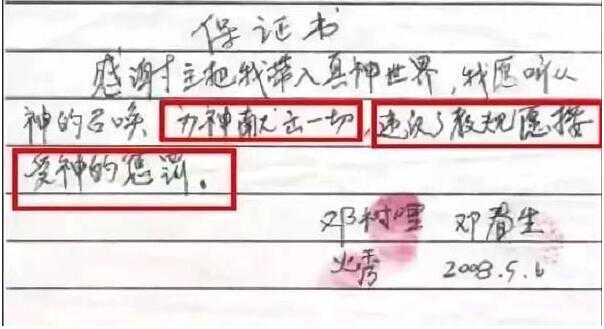 保证书
感谢主把我带入真神世界,我愿听从
神的召唤 为神献出一切,违犯了教规愿接
受神的惩罚。
邓村哩 邓春生
火秀 2008.5.6